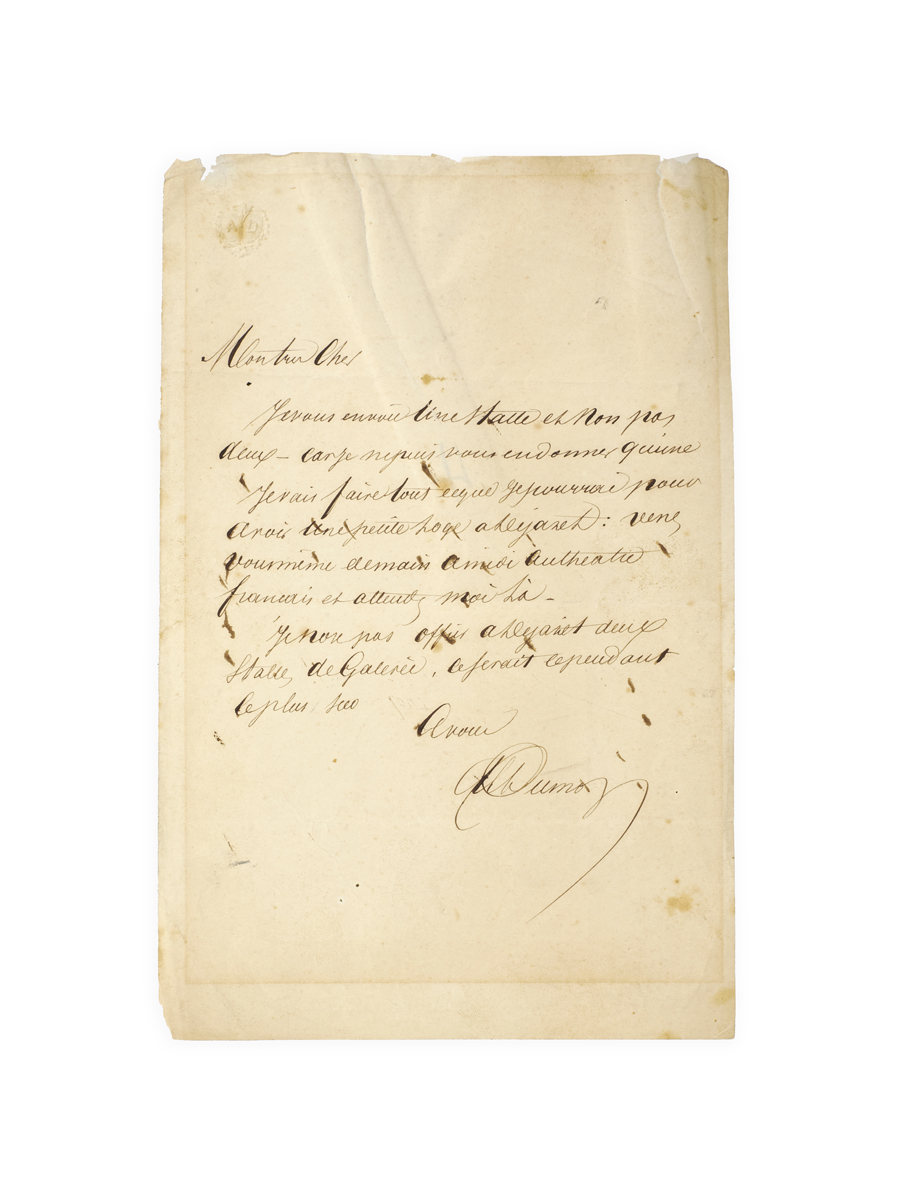 Mon tres Cher
Je vous envoie Une Stalle et Non pas
deux – car je ne puis vous en donner qu'une
Je vais faire tout ce que je pourrai pour
avoir Une petite Loge a Dejazet : venez
vous meme demain a midi au theatre
francais et attendez moi Là –
Je non pas offrir a Dejazet deux
Stalles de Galerie, ce serait cependant
le plus
A vous
Al Dumas